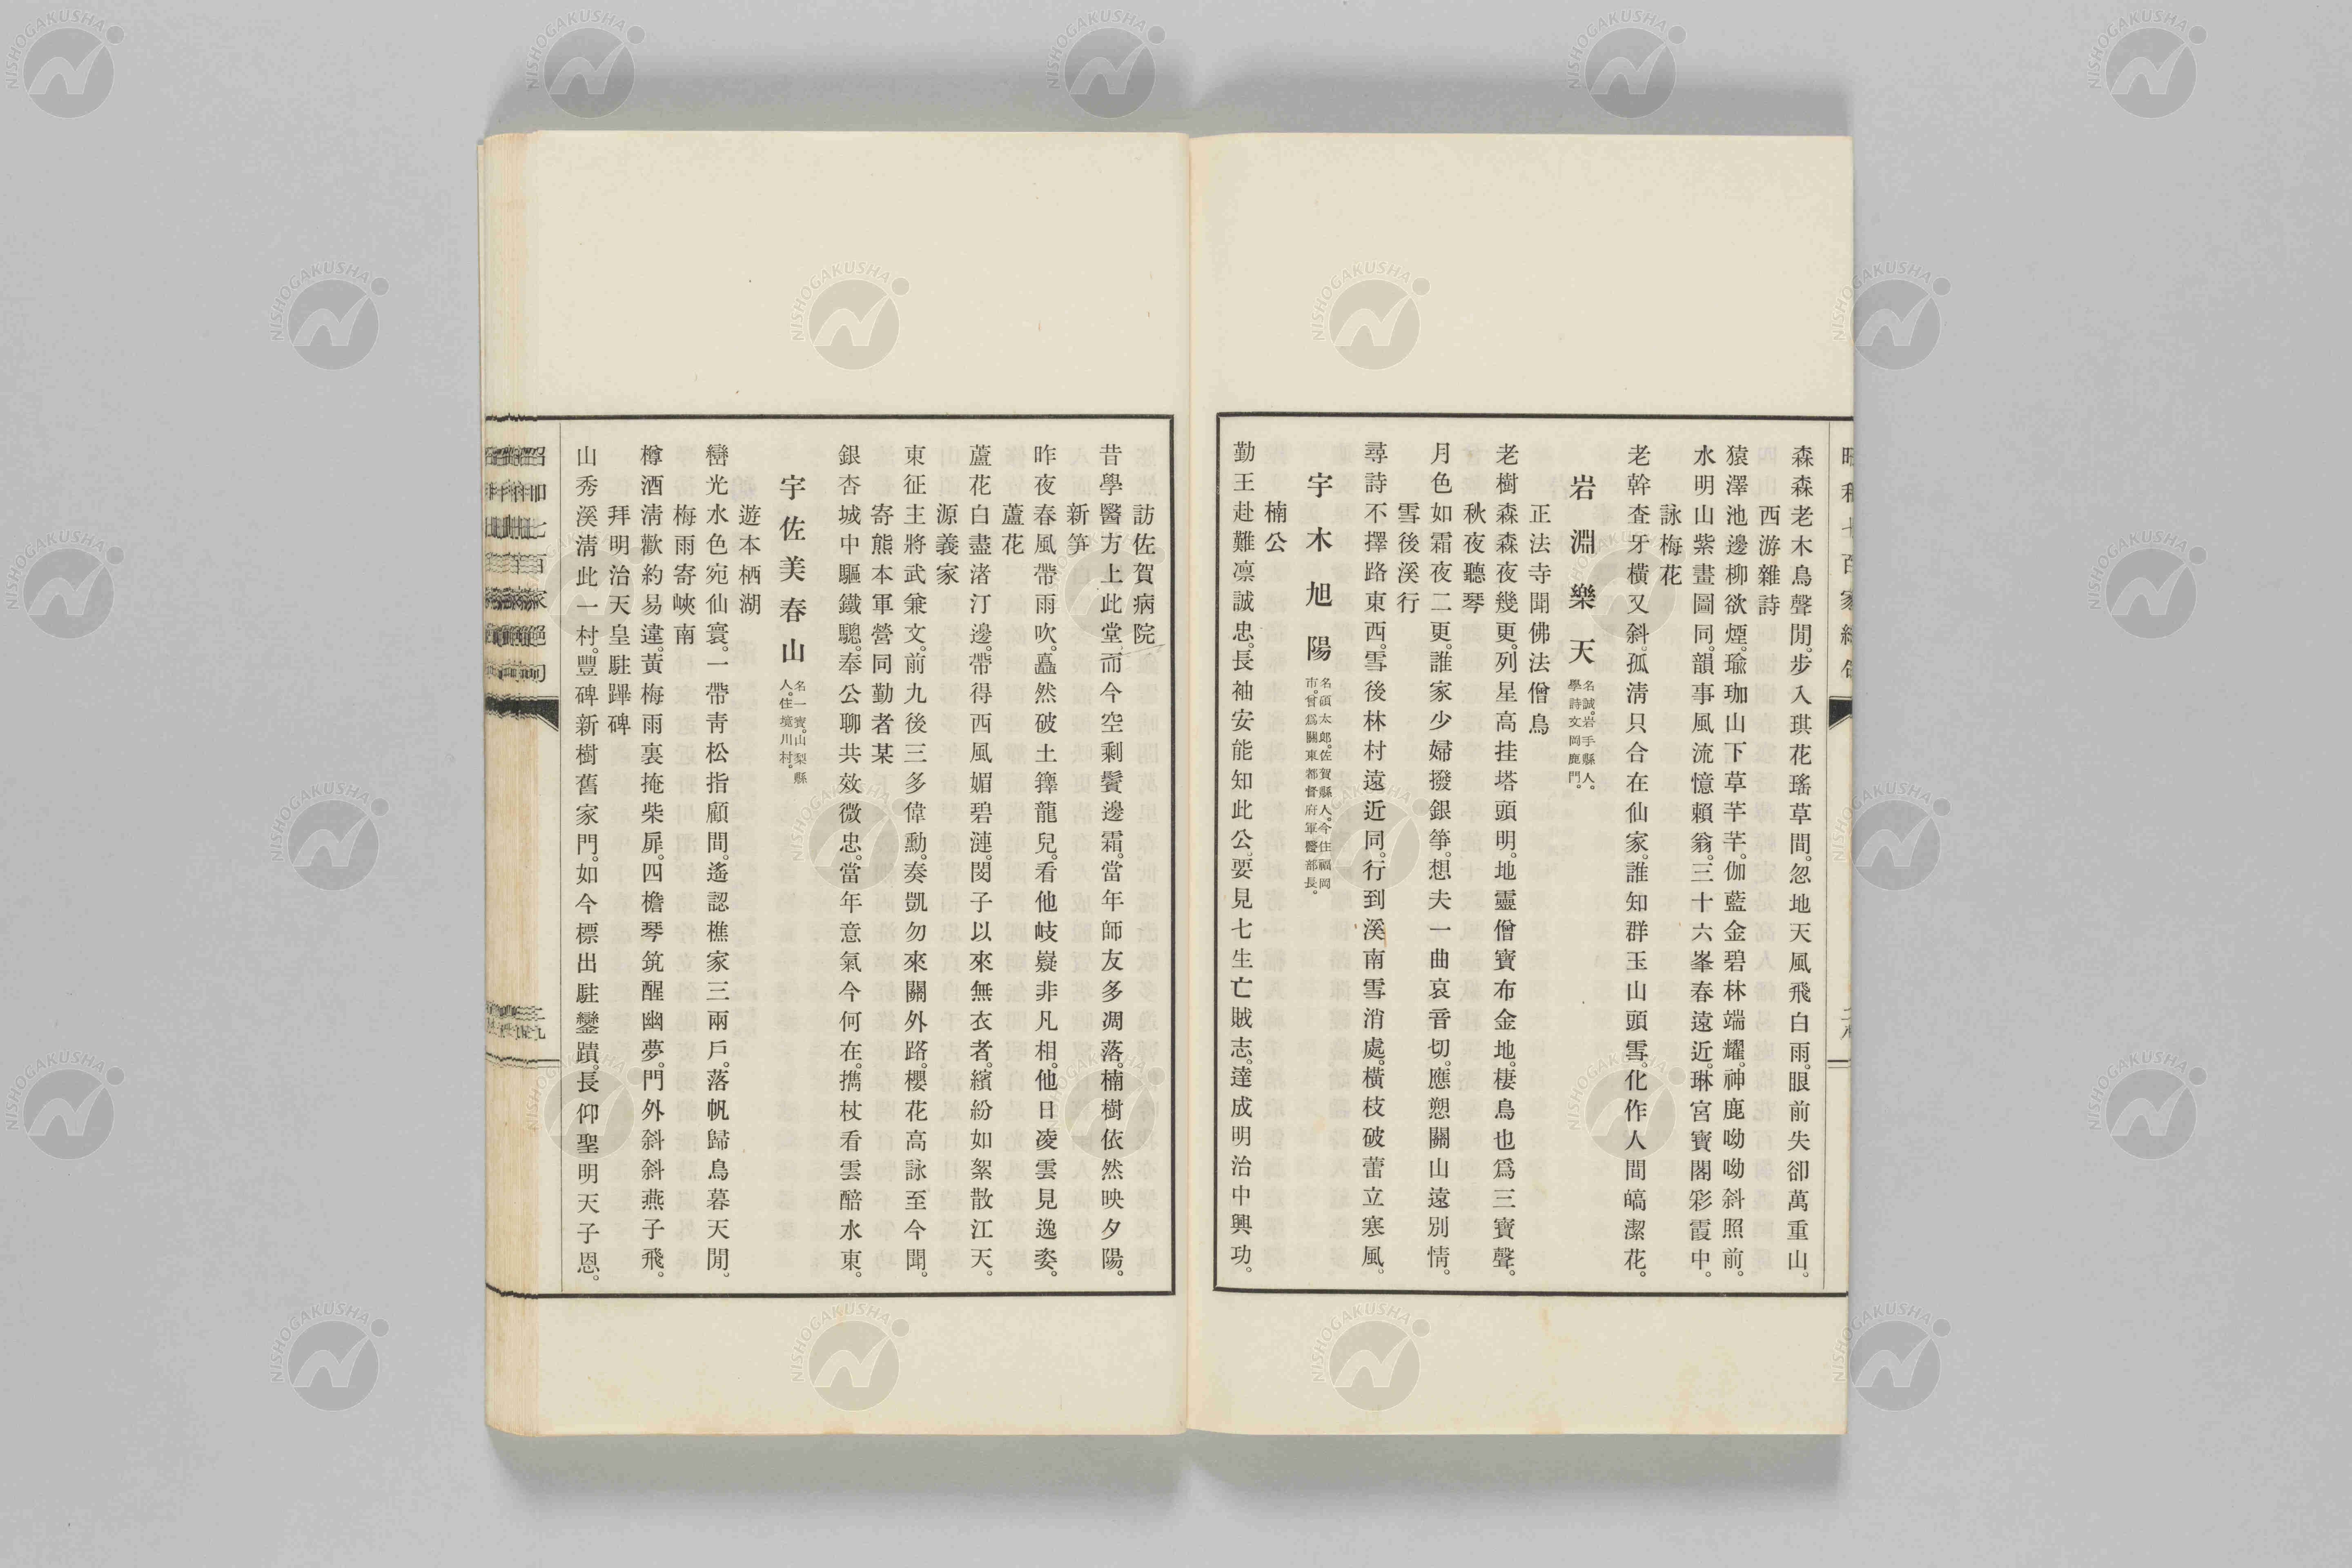 森森老木鳥聲閒。步入琪花瑤草間。忽地天風飛白雨。眼前失卻萬重山。
西游雜詩
猿澤池邊柳欲煙。瑜珈山下草芊芊。伽藍金碧林端耀。神鹿呦呦斜照前。
水明山紫畫圖同。韻事風流憶賴翁。三十六峯春遠近。琳宮寶閣彩霞中。
詠梅花
老幹査牙橫又斜。孤淸只合在仙家。誰知群玉山頭雪。化作人間皜潔花。
岩淵樂天
名誠。岩手縣人。
學詩文岡鹿門。
正法寺聞佛法僧鳥
老樹森森夜幾更。列星高挂塔頭明。地靈僧寶布金地。棲鳥也爲三寶聲。
秋夜聽琴
月色如霜夜二更。誰家少婦撥銀箏。想夫一曲哀音切。應愬關山遠別情。
雪後溪行
尋詩不擇路東西。雪後林村遠近同。行到溪南雪消處。橫枝破蕾立寒風。
宇木旭陽
名碩太郎。佐賀縣人。今住福岡
市。曾爲關東都督府軍醫部長。
楠公
勤王赴難凛誠忠。長袖安能知此公。要見七生亡賊志。達成明治中興功。
訪佐賀病院
昔學醫方上此堂。而今空剩鬢邊霜。當年師友多凋落。楠樹依然映夕陽。
新笋
昨夜春風帶雨吹。矗然破土籜龍兒。看他岐嶷非凡相。他日凌雲見逸姿。
蘆花
蘆花白盡渚汀邊。帶得西風媚碧漣。閔子以來無衣者。繽紛如絮散江天。
源義家
東征主將武兼文。前九後三多偉勳。奏凱勿來關外路。櫻花高詠至今聞。
寄熊本軍營同勤者某
銀杏城中驅鐵驄。奉公聊共效微忠。當年意氣今何在。攜杖看雲醅水東。
宇佐美春山
名一寶。山梨縣
人。住境川村。
遊本栖湖
巒光水色宛仙寰。一帶靑松指顧間。遙認樵家三兩戶。落帆歸鳥暮天閒。
梅雨寄峽南
樽酒淸歡約易違。黃梅雨裏掩柴扉。四檐琴筑醒幽夢。門外斜斜燕子飛。
拜明治天皇駐蹕碑
山秀溪淸此一村。豐碑新樹舊家門。如今標出駐鑾蹟。長仰聖明天子恩。